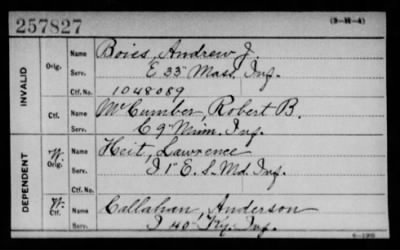 257827
(3-H-4)
INVALID
Orig.
Name Boies, Andrew J.
Serv. E 33" Mass. Inf.
Ctf. No. 1048089
Ctf.
Name McCumber, Robert B.
Serv. C 9" Minn. Inf.
DEPENDENT
W. Orig.
Name Heit, Lawrence
Serv. I 1" E. S. Md. Inf.
Ctf. No.
W. Ctf.
Name Callahan, Anderson
Serv. I 40" Ky. Inf.